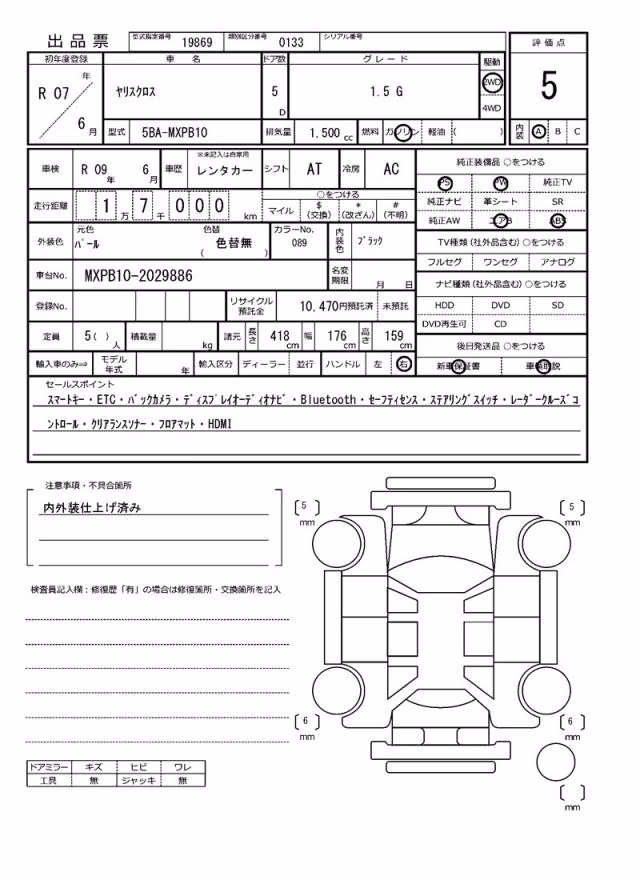 出品票 型式指定番号 19869 類別区分番号 0133 シリアル番号
評価点
5
内装 A B C
初年度登録 車名 ドア数 グレード 駆動
R 07 年 6 月 ヤリスクロス 5 D 1.5 G 2WD 4WD
型式 5BA-MXPB10 排気量 1.500 cc 燃料 ガソリン 軽油 ( )
車検 R 09 年 6 月 車歴 ※未記入は自家用 レンタカー シフト AT 冷房 AC
走行距離 1 万 7 千 0 0 0 km
○をつける
マイル $ (交換) * (改ざん) # (不明)
外装色 元色 パール 色替 色替無 ( ) カラーNo. 089 内装色 ブラック
車台No. MXPB10-2029886 名変期限 月 日
登録No. リサイクル預託金 10.470円預託済 未預託
定員 5( ) 人 積載量 kg 諸元 長さ 418 cm 幅 176 cm 高さ 159 cm
輸入車のみ⇒ モデル年式 年 輸入区分 ディーラー 並行 ハンドル 左 右
純正装備品 ○をつける
PS PW 純正TV
純正ナビ 革シート SR
純正AW エアB ABS
TV種類 (社外品含む) ○をつける
フルセグ ワンセグ アナログ
ナビ種類 (社外品含む) ○をつける
HDD DVD SD
DVD再生可 CD
後日発送品 ○をつける
新車保証書 車輌取説
セールスポイント
スマートキー・ETC・バックカメラ・ディスプレイオーディオナビ・Bluetooth・セーフティセンス・ステアリングスイッチ・レーダークルーズコ
ントロール・クリアランスソナー・フロアマット・HDMI
注意事項・不具合箇所
内外装仕上げ済み
検査員記入欄：修復歴「有」の場合は修復箇所・交換箇所を記入
5 mm
5 mm
6 mm
6 mm
mm
ドアミラー キズ ヒビ ワレ
工具 無 ジャッキ 無